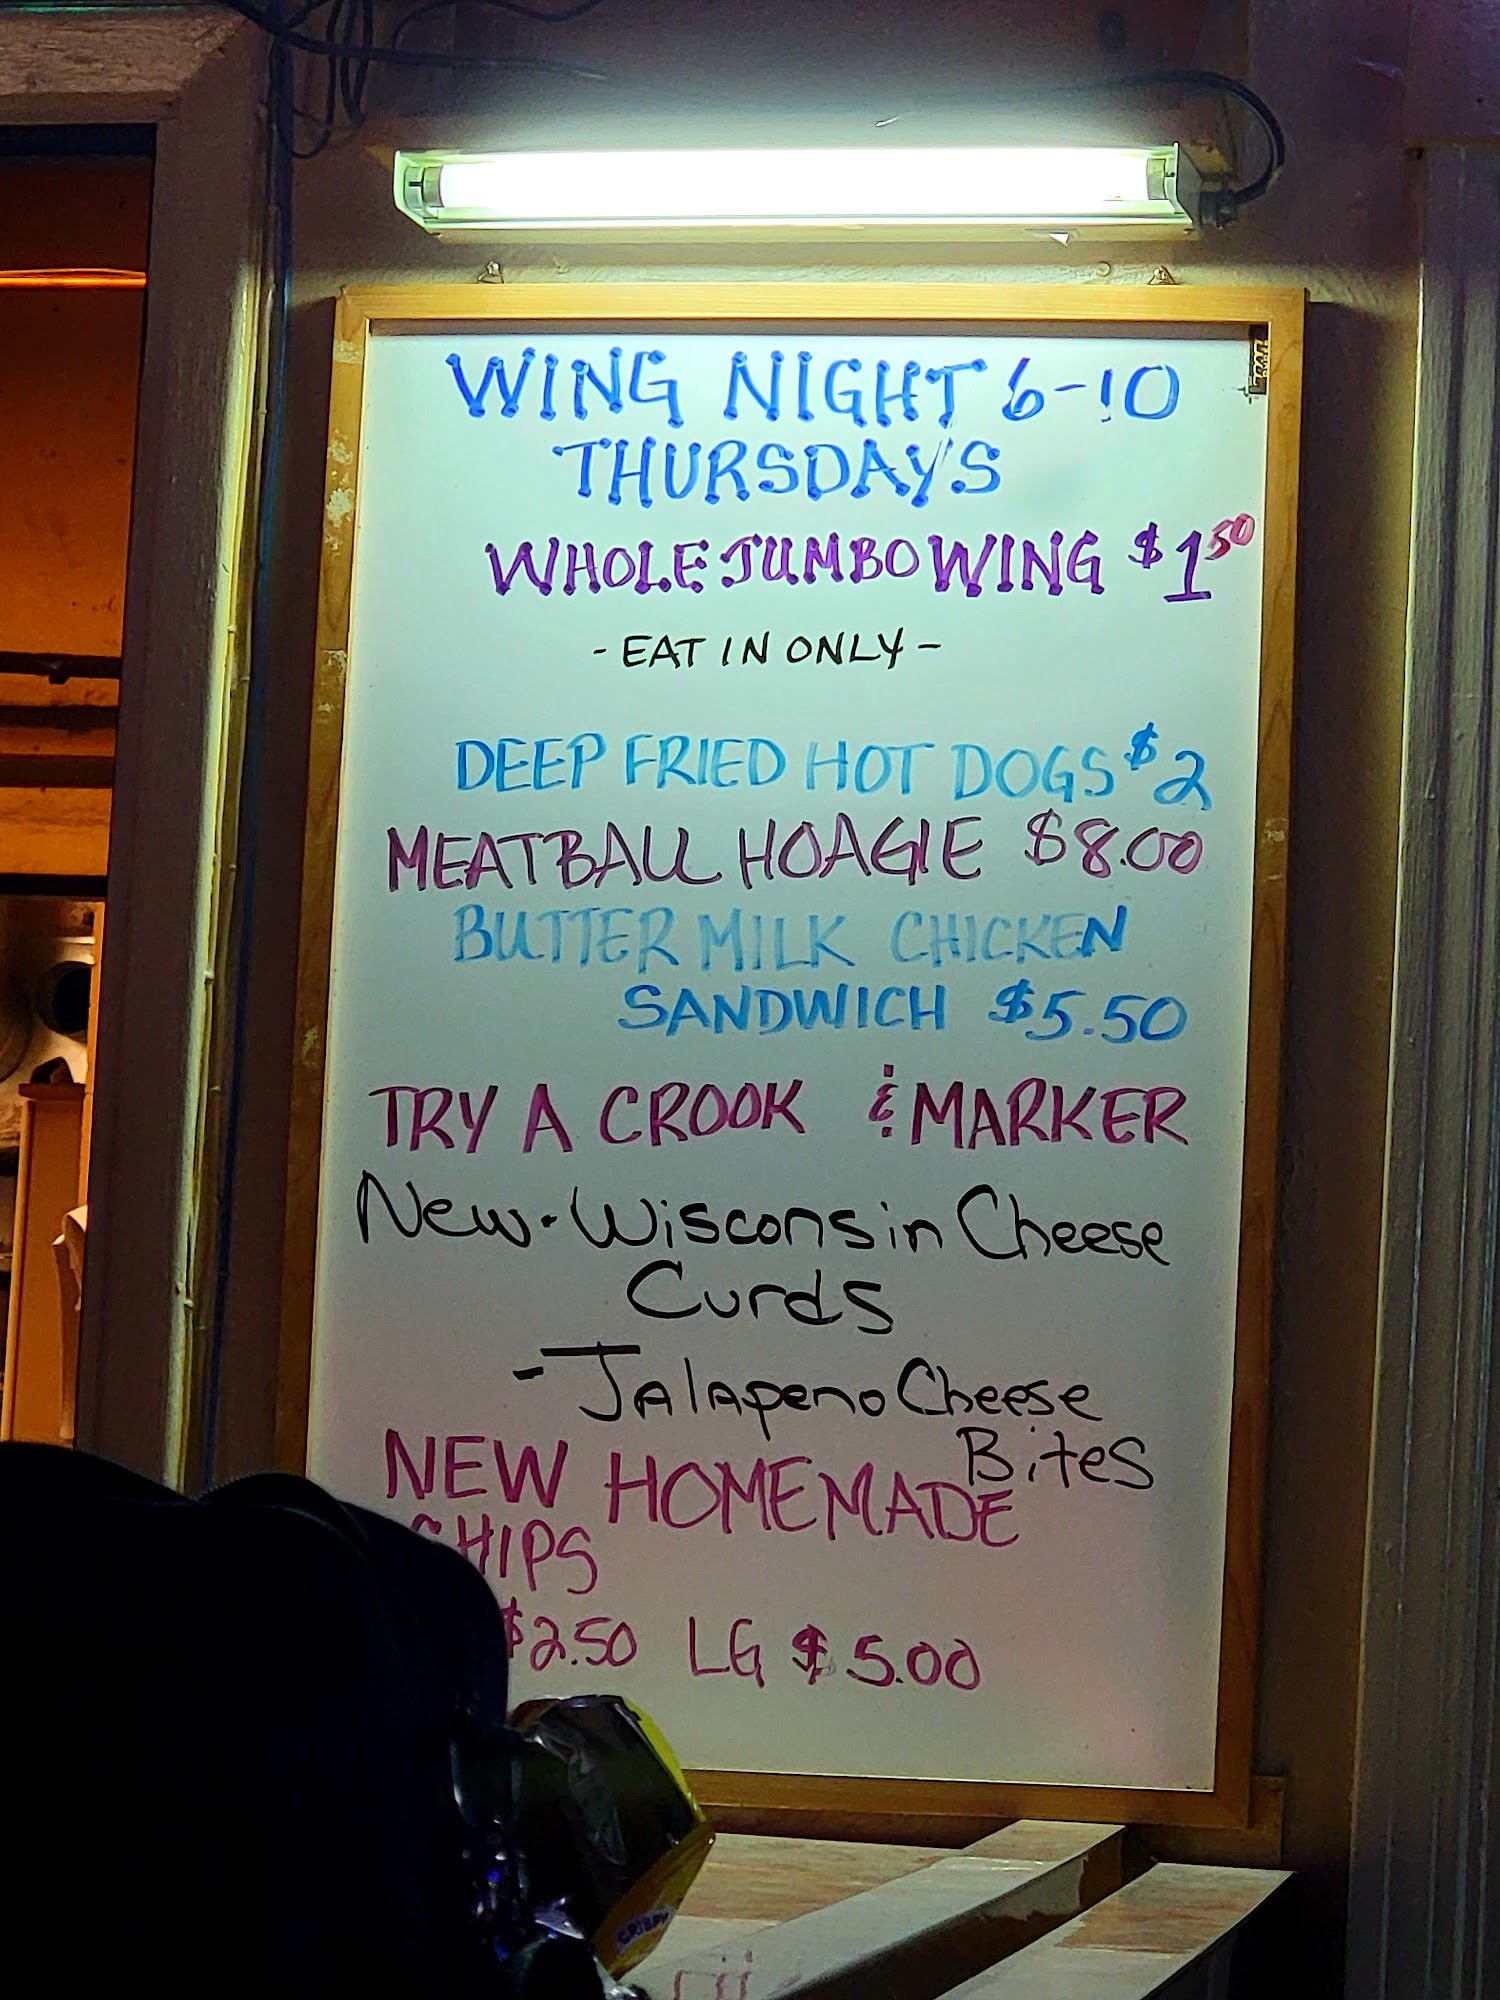 WING NIGHT 6-10
THURSDAY'S
WHOLE JUMBO WING $1 50
- EAT IN ONLY -
DEEP FRIED HOT DOGS $2
MEATBALL HOAGIE $8.00
BUTTERMILK CHICKEN
SANDWICH $5.50
TRY A CROOK & MARKER
New - Wisconsin Cheese
Curds
- Jalapeno Cheese
Bites
NEW HOMEMADE
CHIPS
$2.50 LG $5.00
CRISPY